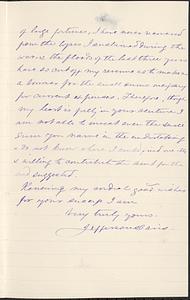 of large fortunes, I have never recovered
from the losses I sustained during the
war & the floods of the last three years
have so cut off my revenue as to make
a burden for the small sums necessary
for current expenses. Therefore, though
my heart is fully in your venture I
am not able to invest even the small
sum you named in the undertaking
& do not know where I could find one who
is willing to contribute the sum for the
end suggested.
Renewing my cordial good wishes
for your success I am
Very truly yours,
Jefferson Davis